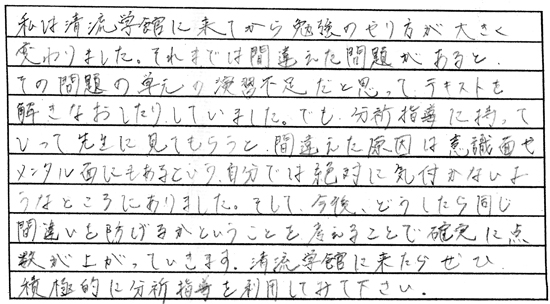 私は清流学館に来てから勉強のやり方が大きく
変わりました。それまでは間違えた問題があると、
その問題の単元の演習不足だと思って、テキストを
解きなおしたりしていました。でも、分析指導に持って
いって先生に見てもらうと、間違えた原因は意識面や
メンタル面にもあるという、自分では絶対に気付かないよ
うなところにありました。そして、今後、どうしたら同じ
間違いを防げるかということを考えることで確実に点
数が上がっていきます。清流学館に来たらぜひ
積極的に分析指導を利用してみて下さい。